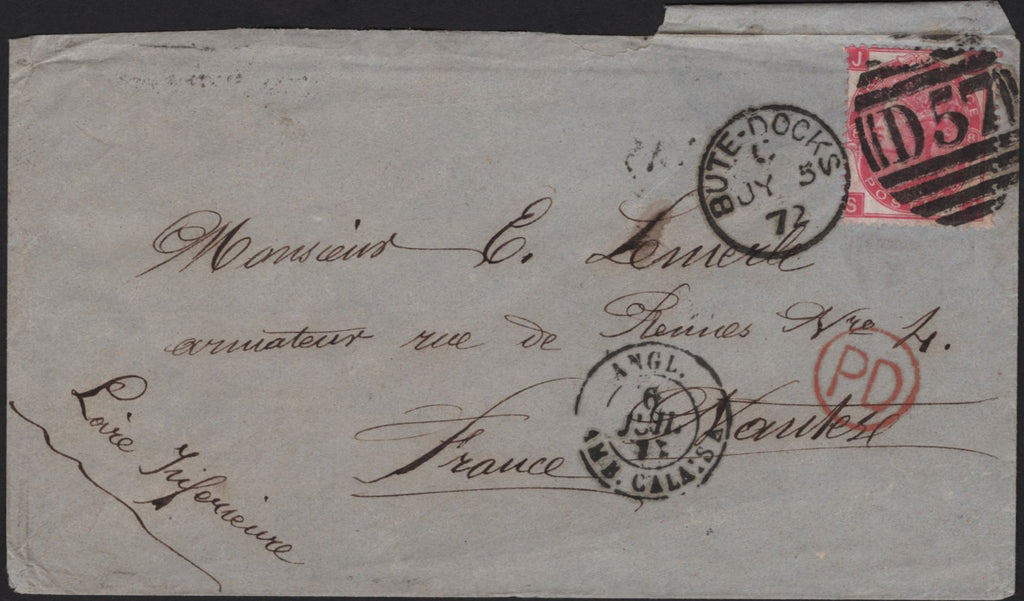 J
D57
POS
S
BUTE-DOCKS
C
JY 5
72
Monsieur E. Lemerle
armateur rue de Rennes Nro 4.
PD
ANGL.
6
JUIL
AMB. CALAIS A
France Nantes
Loire Inférieure